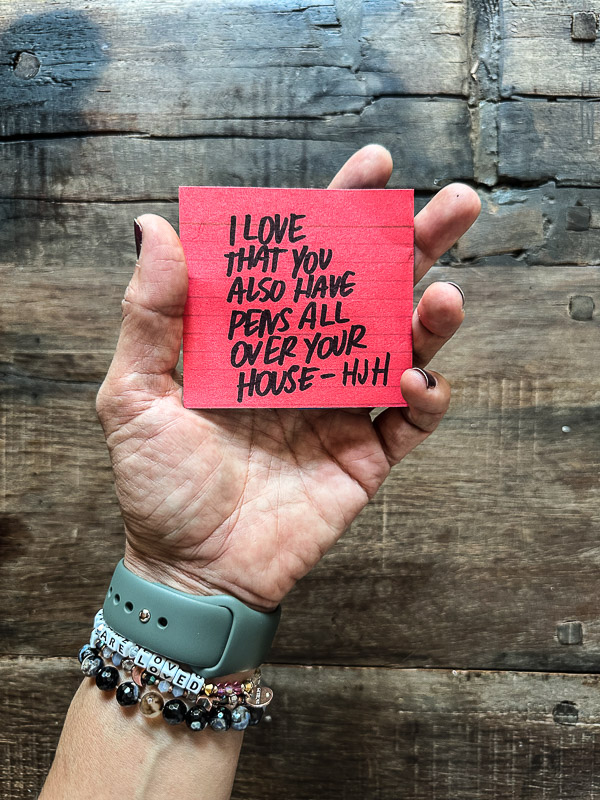 I LOVE
THAT YOU
ALSO HAVE
PENS ALL
OVER YOUR
HOUSE - HJH
ARE LOVED